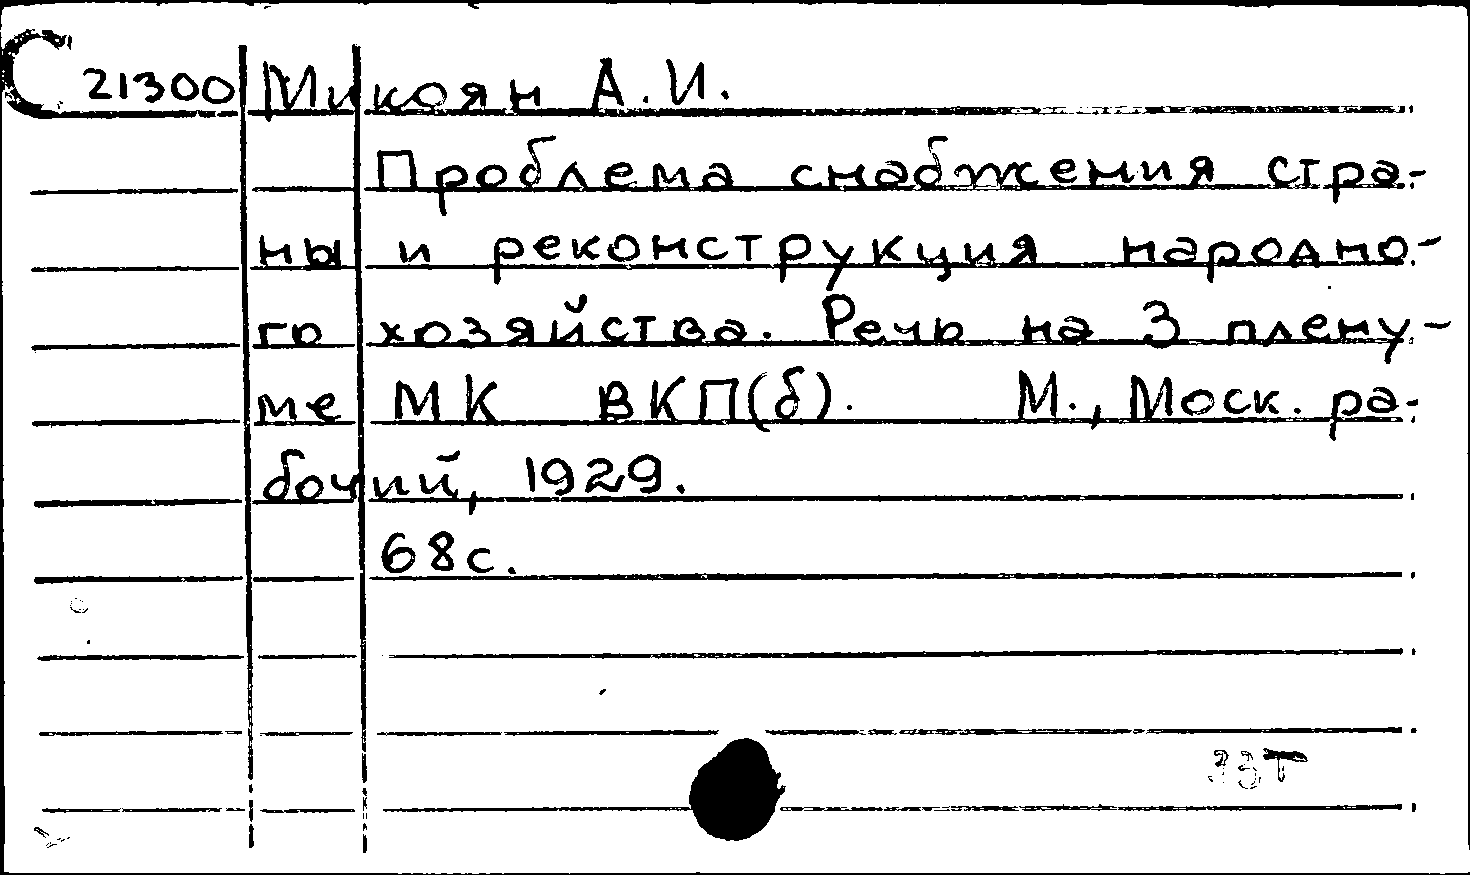 С 21300 Микоян А.И.
Проблема снабжения стра-
ны и реконструкция народно-
го хозяйства. Речь на 3 плену-
ме МК ВКП(б). М., Моск. ра-
бочий, 1929.
68с.
33т